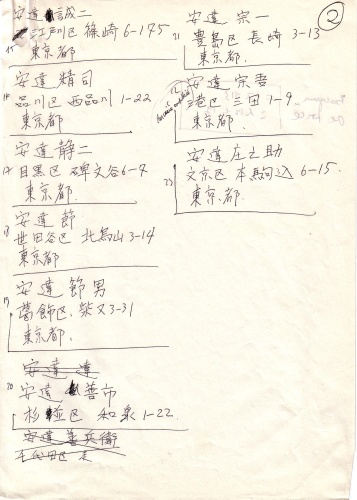 ②
安達 誠二
15 江戸川区 篠崎 6-175
東京都
安達 精司
16 品川区 西品川 1-22
東京都
安達 静二
17 目黒区 碑文谷 6-9
東京都
安達 節
18 世田谷区 北烏山 3-14
東京都
安達 節男
19 葛飾区、柴又 3-31
東京都、
安達 達
20 安達 善市
杉並区 和泉 1-22
安達 善兵衛
千代田区
安達 宗一
21 豊島区 長崎 3-13
東京都、
安達 宗吾
港区 三田 1-9
東京都、
安達 庄之助
23 文京区 本駒込 6-15.
東京都.